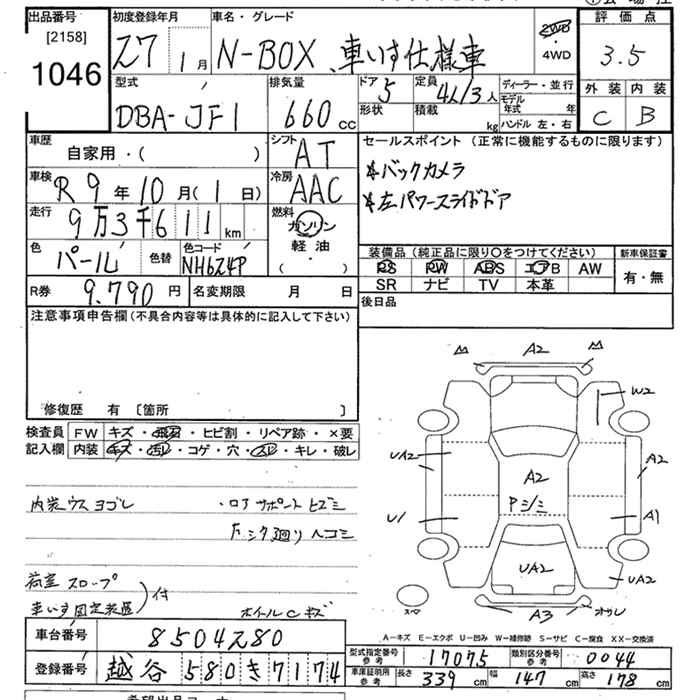 出品番号 初度登録年月 車名・グレード 評価点
[2158] 27年 1月 N-BOX 車いす仕様車 2WD・4WD 3.5
1046
型式 排気量 ドア 定員 ディーラー・並行 外装 内装
DBA-JF1 660cc 5 4人/3人 モデル年式 年 C B
形状 積載 kg ハンドル 左・右
車歴 シフト セールスポイント (正常に機能するものに限ります)
自家用・( ) AT *バックカメラ
車検 冷房 *左パワースライドドア
R9年10月(1日) AAC
走行 燃料
9万3千611km ガソリン
色 色替 色コード 軽油 装備品(純正品に限り○をつけてください) 新車保証書
パール NH624P ・( ) PS PW ABS エアB AW 有・無
SR ナビ TV 本革
R券 9.790円 名変期限 月 日 後日品
注意事項申告欄(不具合内容等は具体的に記入して下さい)
修復歴 有 [箇所 ]
検査員 FW キズ・飛石・ヒビ割・リペア跡・×要
記入欄 内装 キズ・汚レ・コゲ・穴・スレ・キレ・破レ
内装ウスヨゴレ ・ロアサポートヒズミ
下シタ廻りヘコミ
荷室スロープ
車いす固定装置)付 ホイールCキズ
A2
W2
UA2 A2 A2
Pシミ
U1 A1
UA2 UA2
スペ A3 オサレ
A-キズ E-エクボ U-凹み W-補修跡 S-サビ C-腐食 XX-交換済
車台番号 8504280
型式指定番号 参考 17075 類別区分番号 参考 0044
登録番号 越谷 580 き 7174
車庫証明用 参考 長さ 339cm 幅 147cm 高さ 178cm